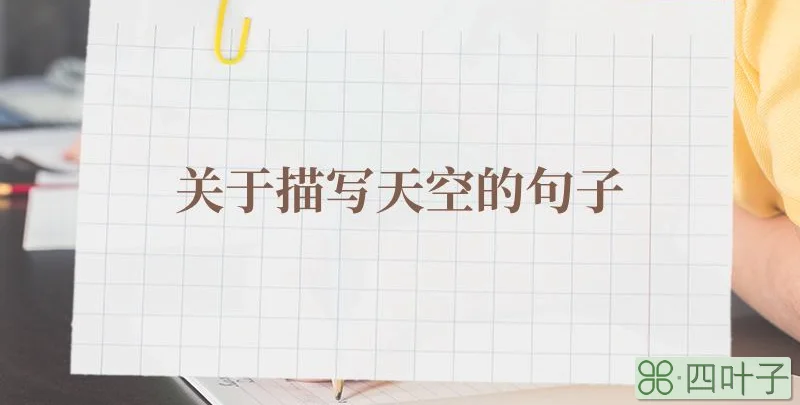 关于描写天空的句子
四叶子